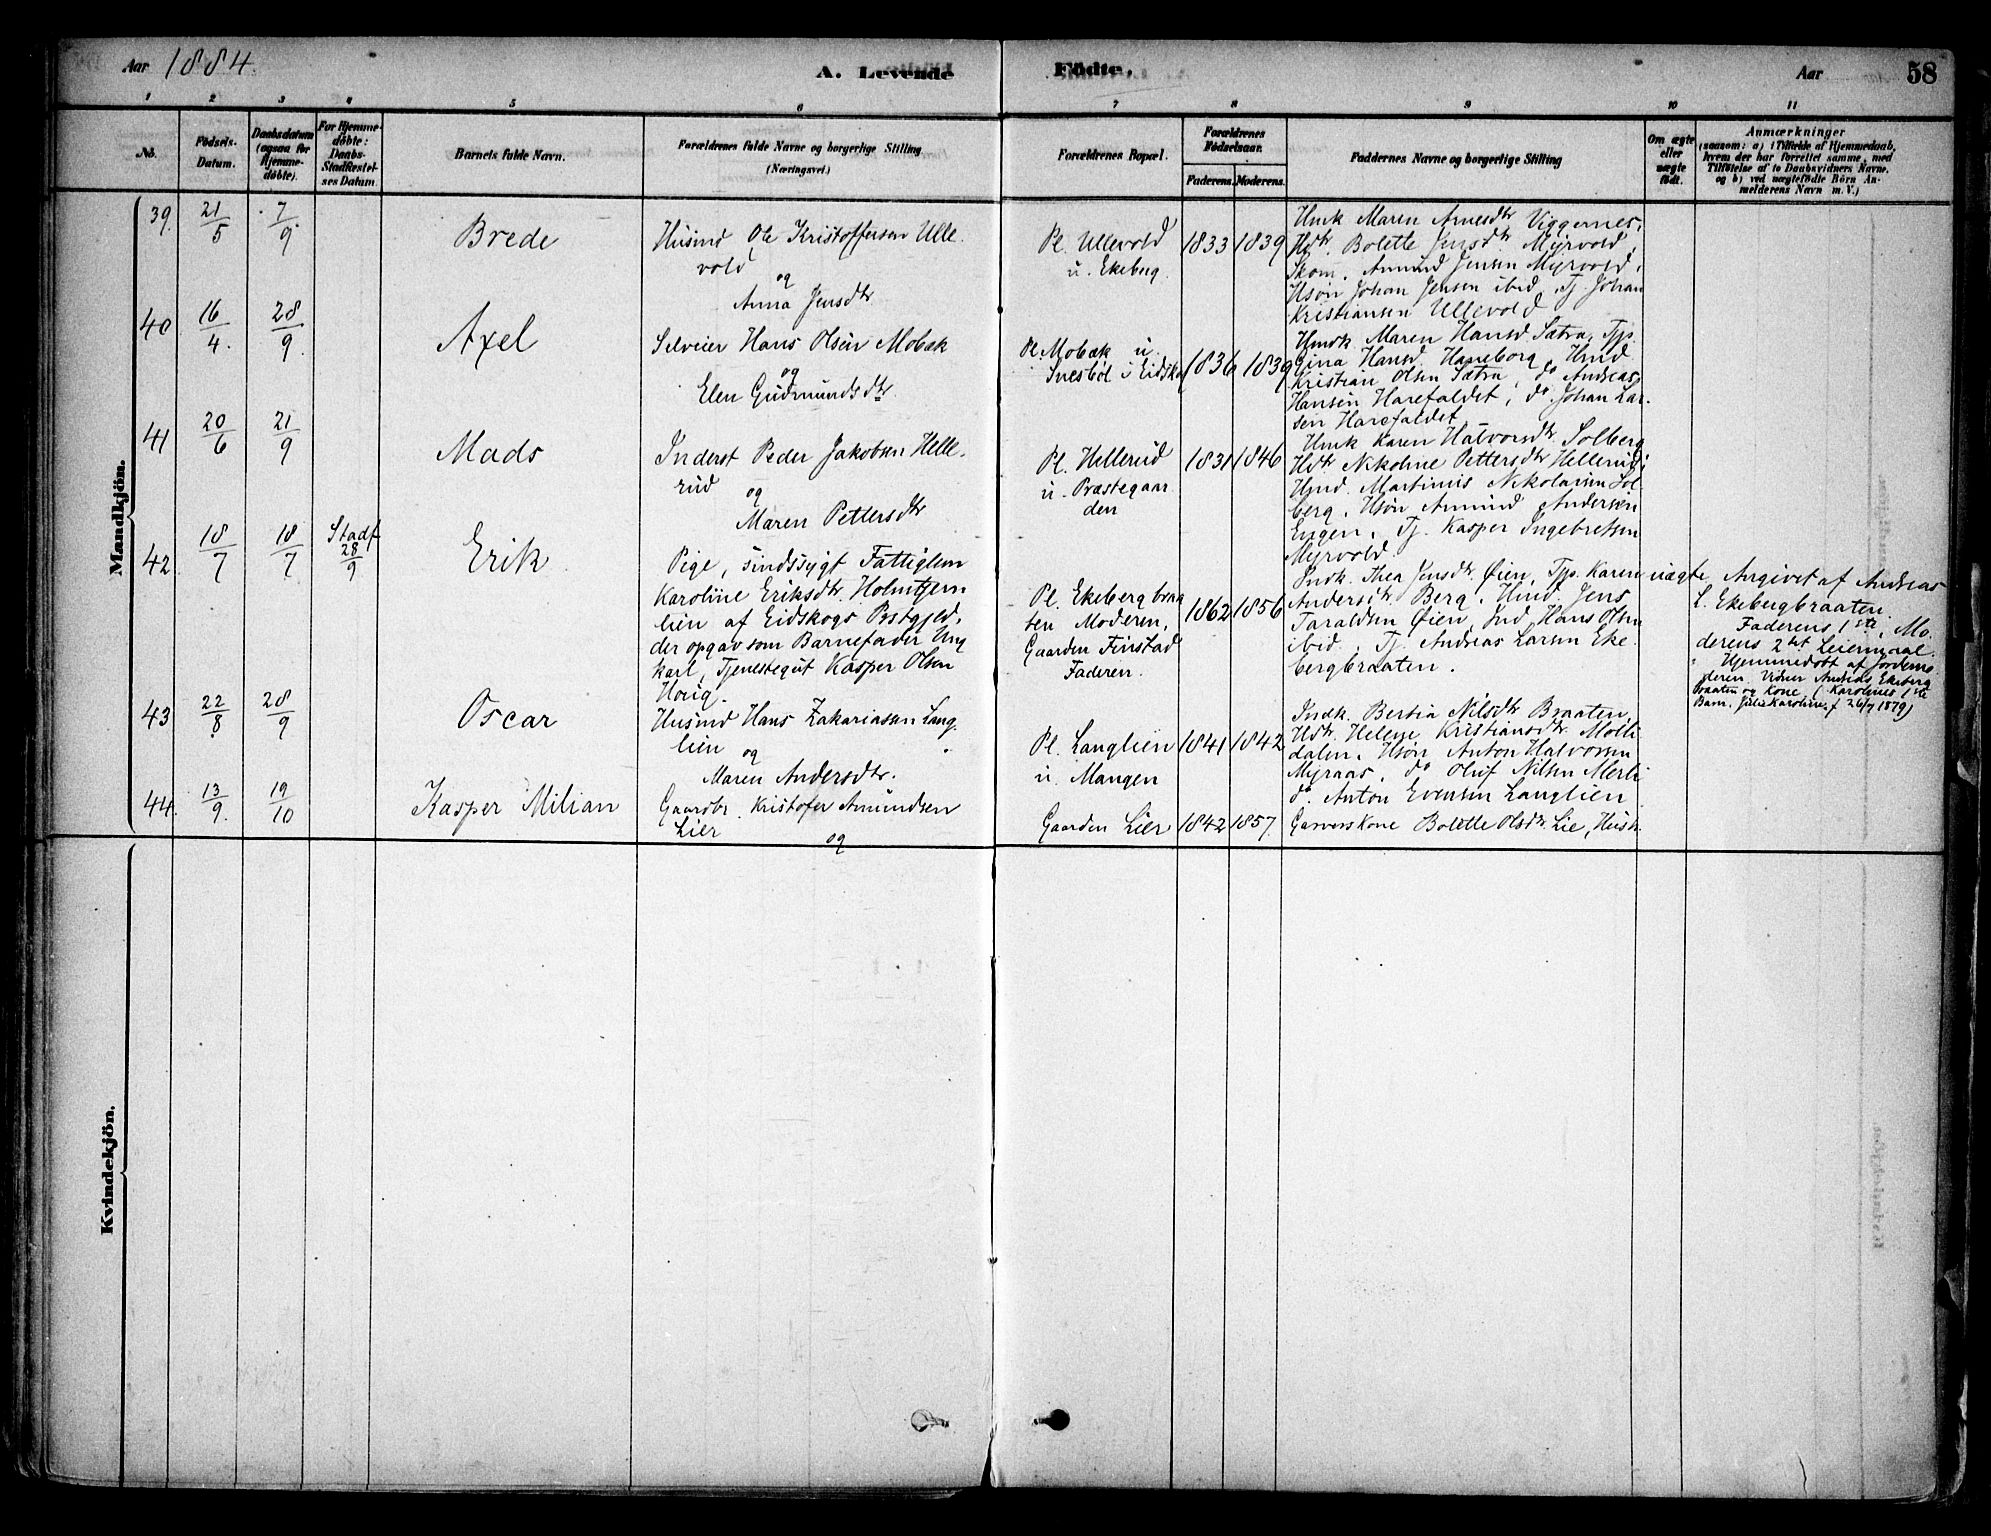 Aar 1884.
A. Levende Födte.
Aar
58
1 2 3 4 5 6 7 8 9 10 11
No.
Födsels-Datum.
Daabsdatum (ogsaa for Hjemme-döbte).
For Hjemme-döbte: Daabs-Stadfæstel-ses Datum.
Barnets fulde Navn.
Forældrenes fulde Navne og borgerlige Stilling (Næringsvei.)
Forældrenes Bopæl.
Forældrenes Födselsaar.
Faderens. Moderens.
Faddernes Navne og borgerlige Stilling
Om ægte eller uægte födt.
Anmærkninger
(saasom: a) i Tilfælde af Hjemmedaab,
hvem der har forrettet samme, med
Tilföielse af to Daabsvidners Navne.
og b) ved uægtefödte Börn An-
melderens Navn m. V.)
Mandkjön.
39. 21/5 7/9.
Brede
Husmd Ole Kristoffersen Ulle-
vold
og
Anna Jensdtr
Pl. Ullevold
u. Ekeberg.
1833 1839
Hmk Maren Arnesdtr Viggernes,
Hdtr. Bolette Jensdtr Myrvold,
Skom. Amund Jensen Myrvold,
Hsøn Johan Jensen ibid, Tj. Johan
Kristiansen Ullevold
40 16/4. 28/9.
Axel
Selveier Hans Olsen Mobæk
og
Elen Gudmundsdtr.
Pl. Mobæk u.
Snesbøl i Eidskog
1836 1839
Hmdk. Maren Hansd. Sætra, Tjp.
Gina Hansd Haneborg, Hmd
Kristian Olsen Sætra, do Andreas
Hansen Harefaldet, do. Johan Lar-
sen Harefaldet
41 20/6 21/9
Mads
Inderst Peder Jakobsen Helle-
rud
og
Maren Pettersdtr
Pl. Hellerud
u. Præstegaar
den
1831 1846
Hmk Karen Halvorsdtr Solberg
Hdtr Nikoline Pettersdtr Hellerud,
Hmd. Martinus Nikolaisen Sol-
berg, Hsøn Amund Andersen
Engen, Tj. Kasper Ingebretsen
Myrvold.
42. 18/7 18/7 Stadf 28/9
Erik.
Pige, sindssygt Fattiglem
Karoline Eriksdtr. Holmtjern
lien af Eidskogs Prstgjeld,
der opgav som Barnefader Ung
karl, Tjenestegut Kasper Olsen
Horig.
Pl. Ekebergbraa
ten Moderen,
Gaarden Finstad
Faderen.
1862 1856
Indk. Thea Jensdtr. Øien, Tjp. Karen
Andersdtr. Berg, Hmd. Jens
Taraldsen Øien, Ind Hans Olsen
ibid, Tj. Andreas Larsen Eke-
bergbraaten.
uægte
Angivet af Andreas
L. Ekebergbraaten
Faderens 1ste, Mo-
derens 2det Leiermaal.
Hjemmedøbt af Jordemo
deren Vidner Andreas Ekeberg
braaten og Kone. (Karolines 1ste
Barn. Julie Karoline, f 26/7 1879)
43 22/8 28/9
Oscar
Husmd Hans Zakariassen Lang-
lien
og
Maren Andersdtr.
Pl. Langlien
u. Mangen
1841 1842
Indk. Bertia Nilsdtr Braaten,
Hdtr. Helene Kristiansdtr Molli
dalen, Hsøn Anton Halvorsen
Myraas, do Oluf Nilsen Merli
do. Anton Evensen Langlien
44. 13/9. 19/10
Kasper Milian
Gaardbr. Kristofer Amundsen
Lier
og
Gaarden Lier
1842 1857
Garverskone Bolette Olsdtr. Lie, Hustr.
Kvindekjön.